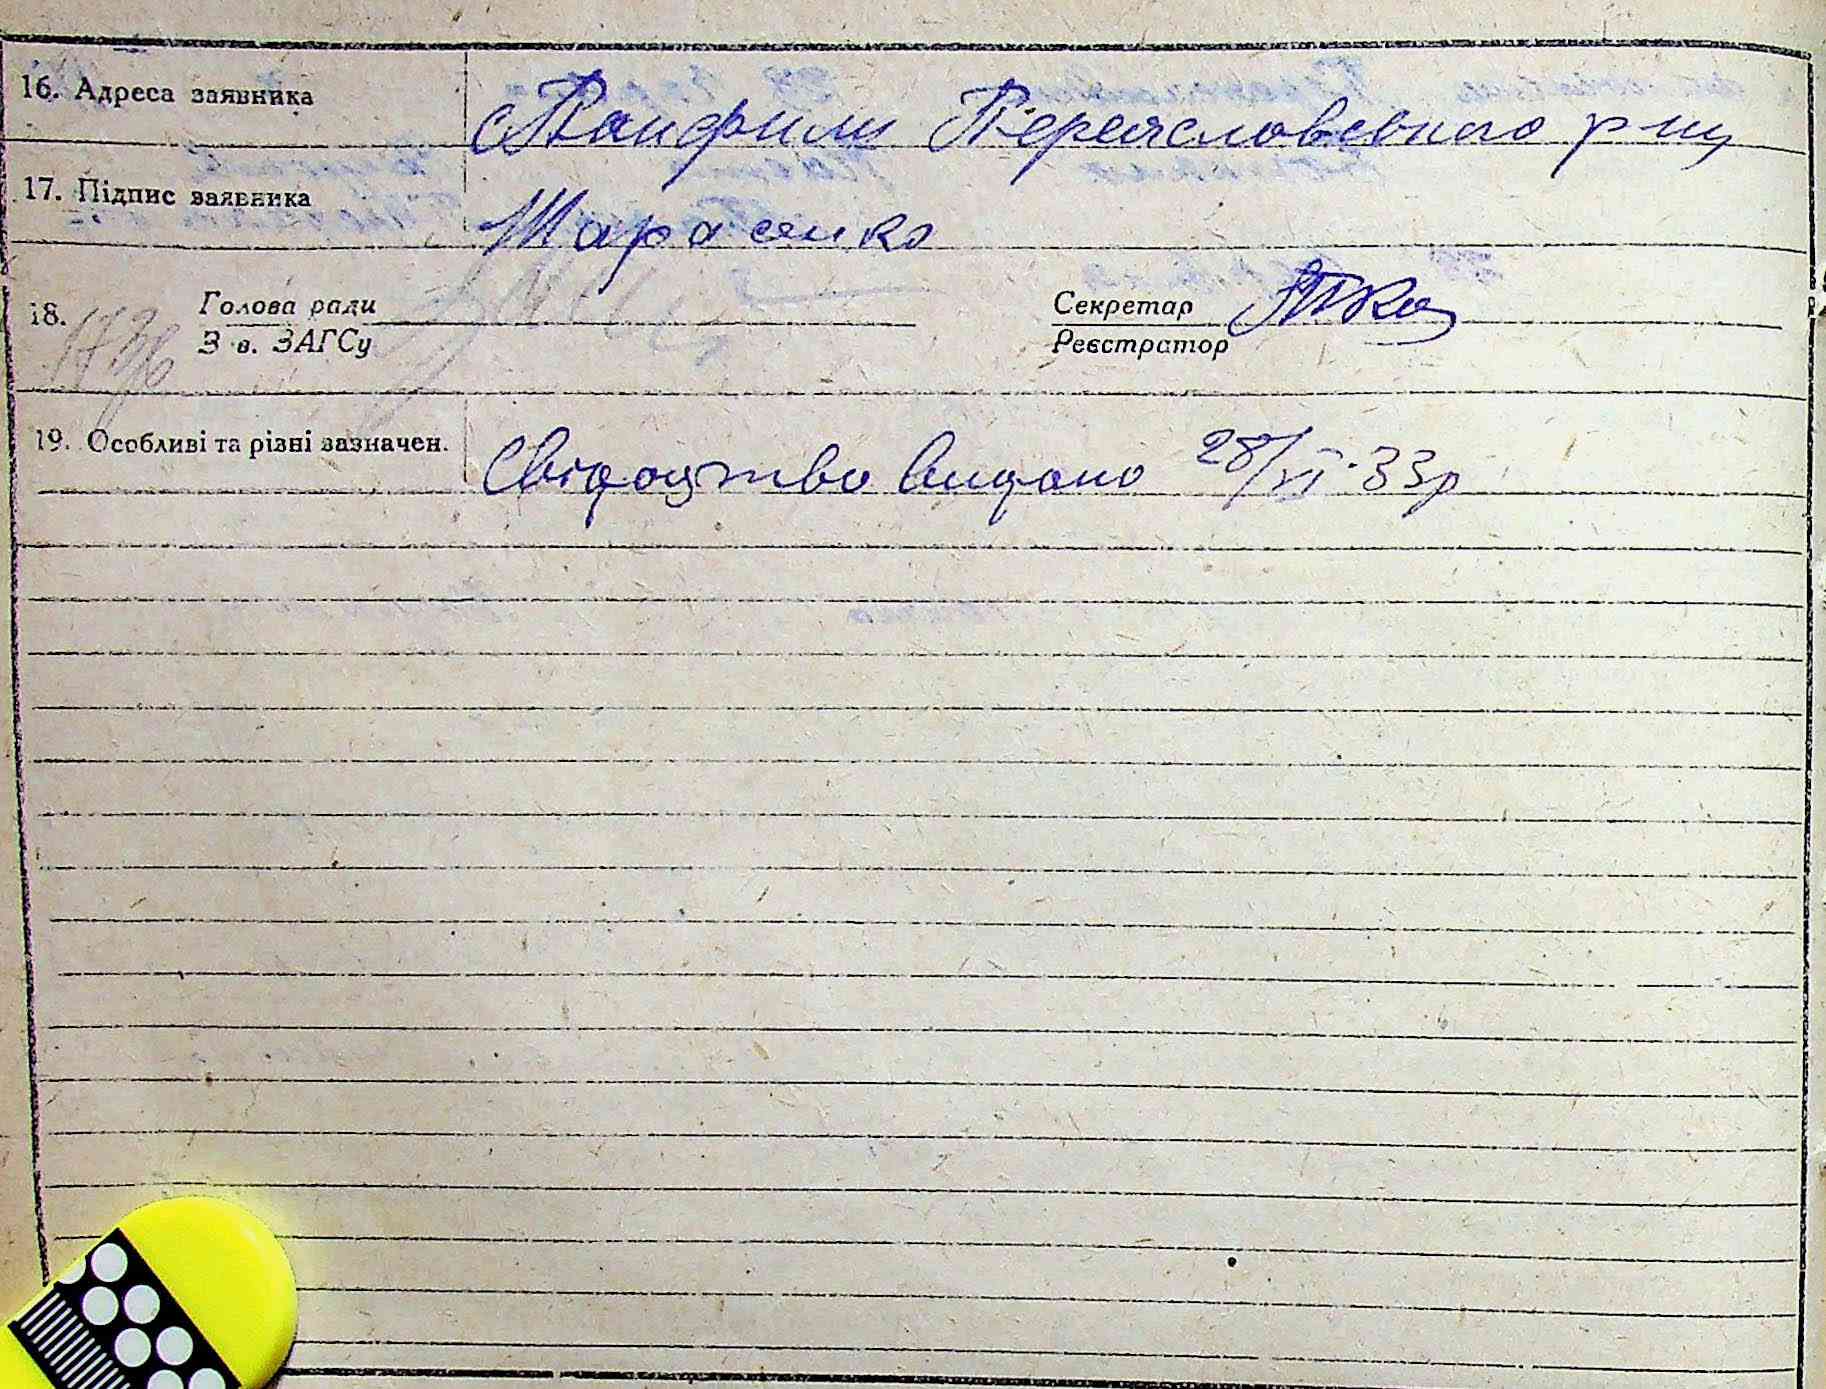 16. Адреса заявника с Панфили Переяславського р-ну
17. Підпис заявника Тарасенко
18. Голова ради Секретар
З в. ЗАГСу Реєстратор
1736
19. Особливі та різні зазначен. Свідоцтво видано 28/VI-33р